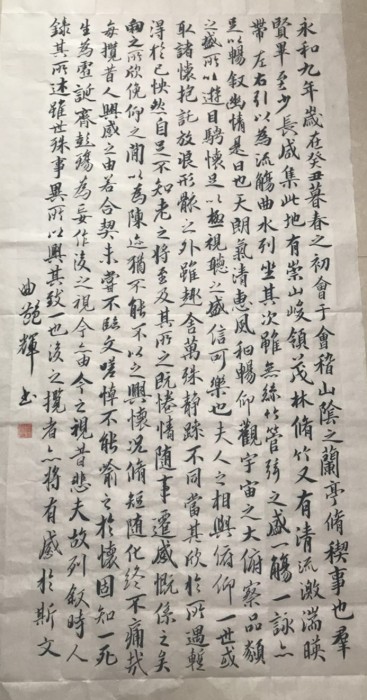 永和九年歲在癸丑暮春之初會于會稽山陰之蘭亭脩稧事也羣
賢畢至少長咸集此地有崇山峻領茂林脩竹又有清流激湍暎
帶左右引以為流觴曲水列坐其次雖無絲竹管弦之盛一觴一詠亦
足以暢叙幽情是日也天朗氣清惠風和暢仰觀宇宙之大俯察品類
之盛所以遊目騁懷足以極視聽之盛信可樂也夫人之相與俯仰一世或
取諸懷抱託放浪形骸之外雖趣舍萬殊靜躁不同當其欣於所遇蹔
得於己怏然自足不知老之將至及其所之既惓情隨事遷感慨係之矣
向之所欣俛仰之間以為陳迹猶不能不以之興懷況脩短隨化終不痛哉
每攬昔人興感之由若合契未嘗不臨文嗟悼不能喻之於懷固知一死
生為虛誕齊彭殤為妄作後之視今亦由今之視昔悲夫故列叙時人
錄其所述雖世殊事異所以興其致一也後之攬者亦將有感於斯文
曲艷輝書